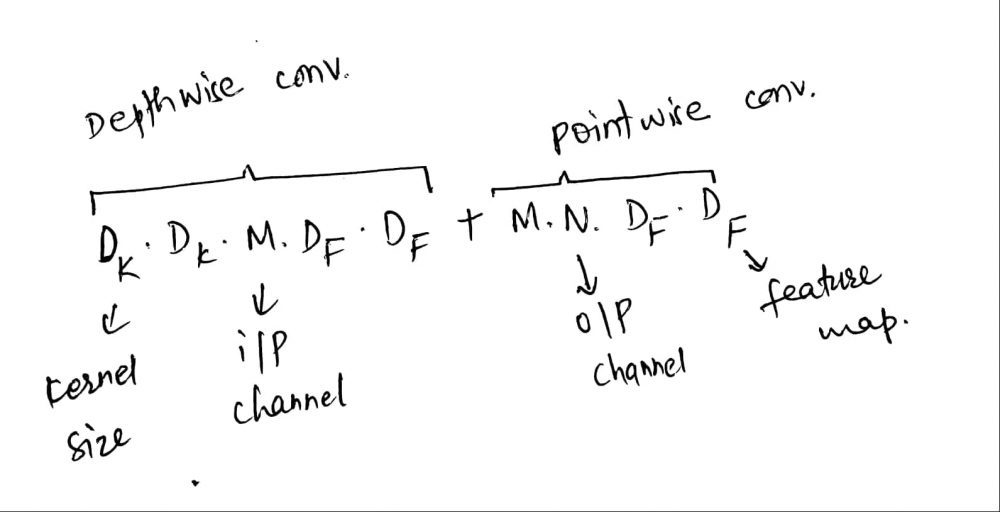 Depthwise conv.
pointwise conv.
D_K . D_K . M . D_F . D_F + M . N . D_F . D_F
kernel size
i/P channel
o/P channel
feature map.